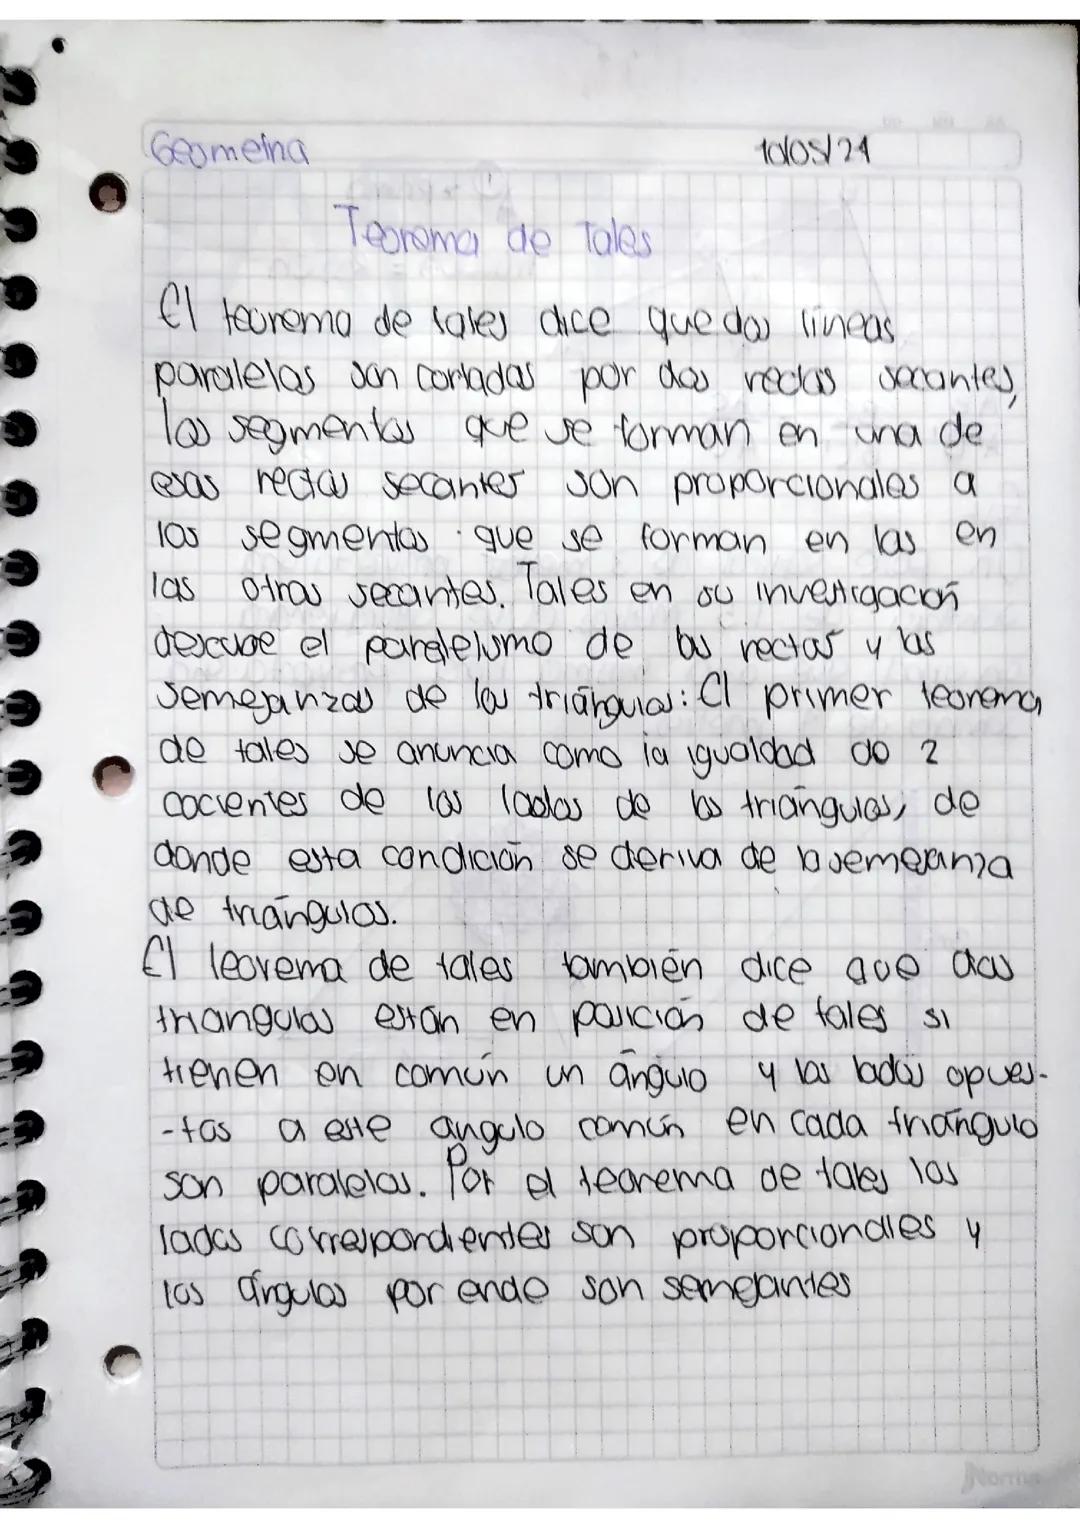 Geometria
10/05/24
Teorema de Tales
El teorema de tales dice que dos lineas
paralelas son cortadas por dos rectas secantes,
los segmentos que se forman en una de
esas rectas secantes son proporcionales a
los segmentos que se forman en las en
las otras secantes. Tales en su investigación
descube el paralelismo de las rectas y las
semejanzas de los triángulos: El primer teorema
de tales se anuncia como la igualdad de 2
cocientes de los lados de los triángulos, de
donde esta condición se deriva de la semejanza
de triángulos.
El teorema de tales también dice que dos
triangulos están en posición de tales si
tienen en común un ángulo y los lados opues-
-tos a este angulo común en cada triángulo
son paralelos. Por el teorema de tales los
lados correspondientes son proporcionales y
los ángulos por ende son semejantes
Norma